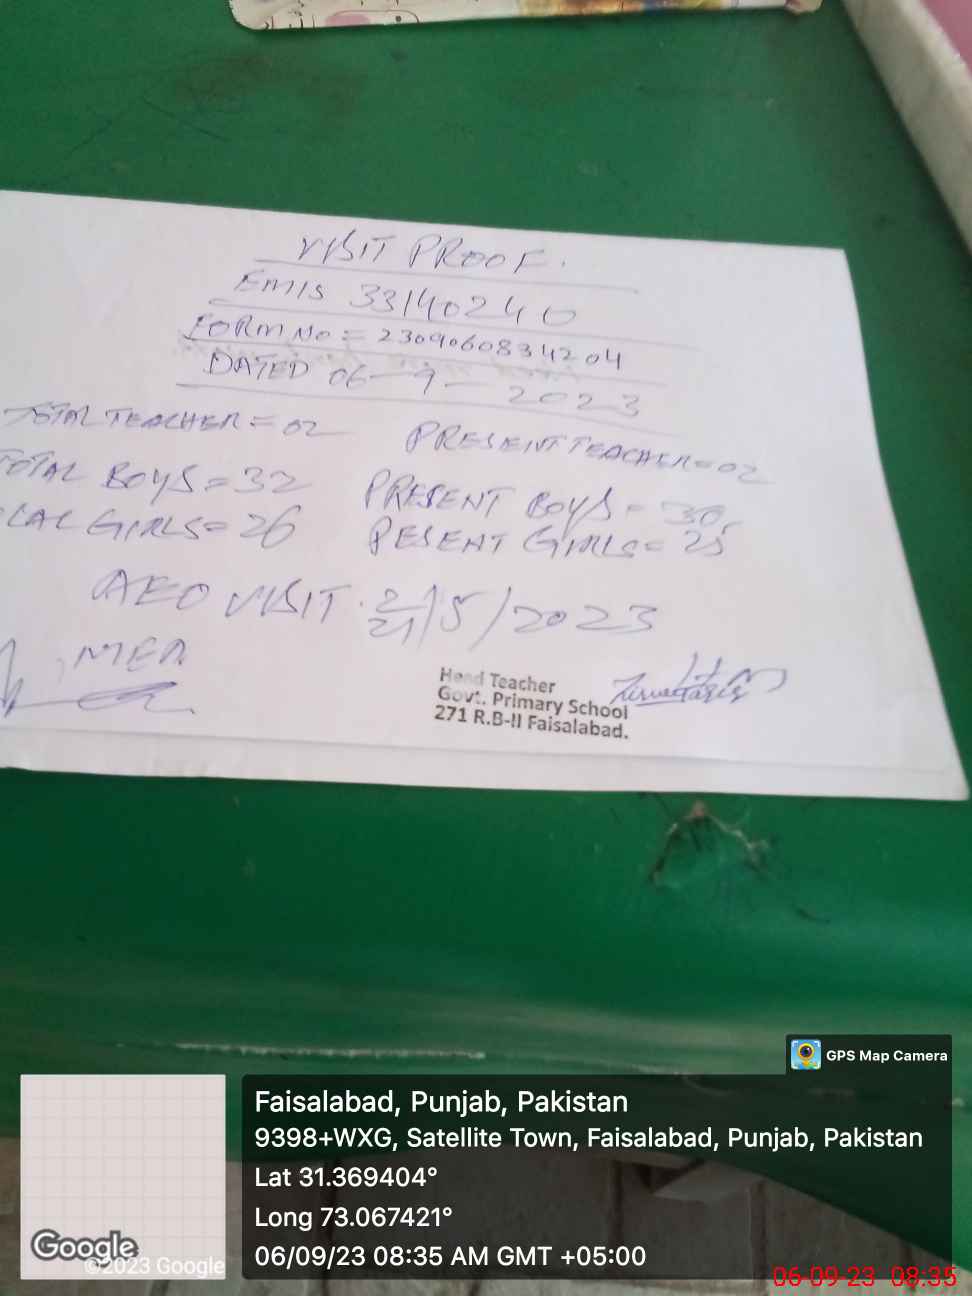 VISIT PROOF.
EMIS 33140240
FORM No = 2309060834204
DATED 06-9-2023
TOTAL TEACHER = 02 PRESENT TEACHER = 02
TOTAL BOYS = 32 PRESENT BOYS = 30,
GIRLS = 26 PESENT GIRLS = 25
AEO VISIT. /5/2023
MEA
Head Teacher
Govt. Primary School
271 R.B-II Faisalabad.
GPS Map Camera
Faisalabad, Punjab, Pakistan
9398+WXG, Satellite Town, Faisalabad, Punjab, Pakistan
Lat 31.369404°
Long 73.067421°
06/09/23 08:35 AM GMT +05:00
Google
©2023 Google
06-09-23 08:35